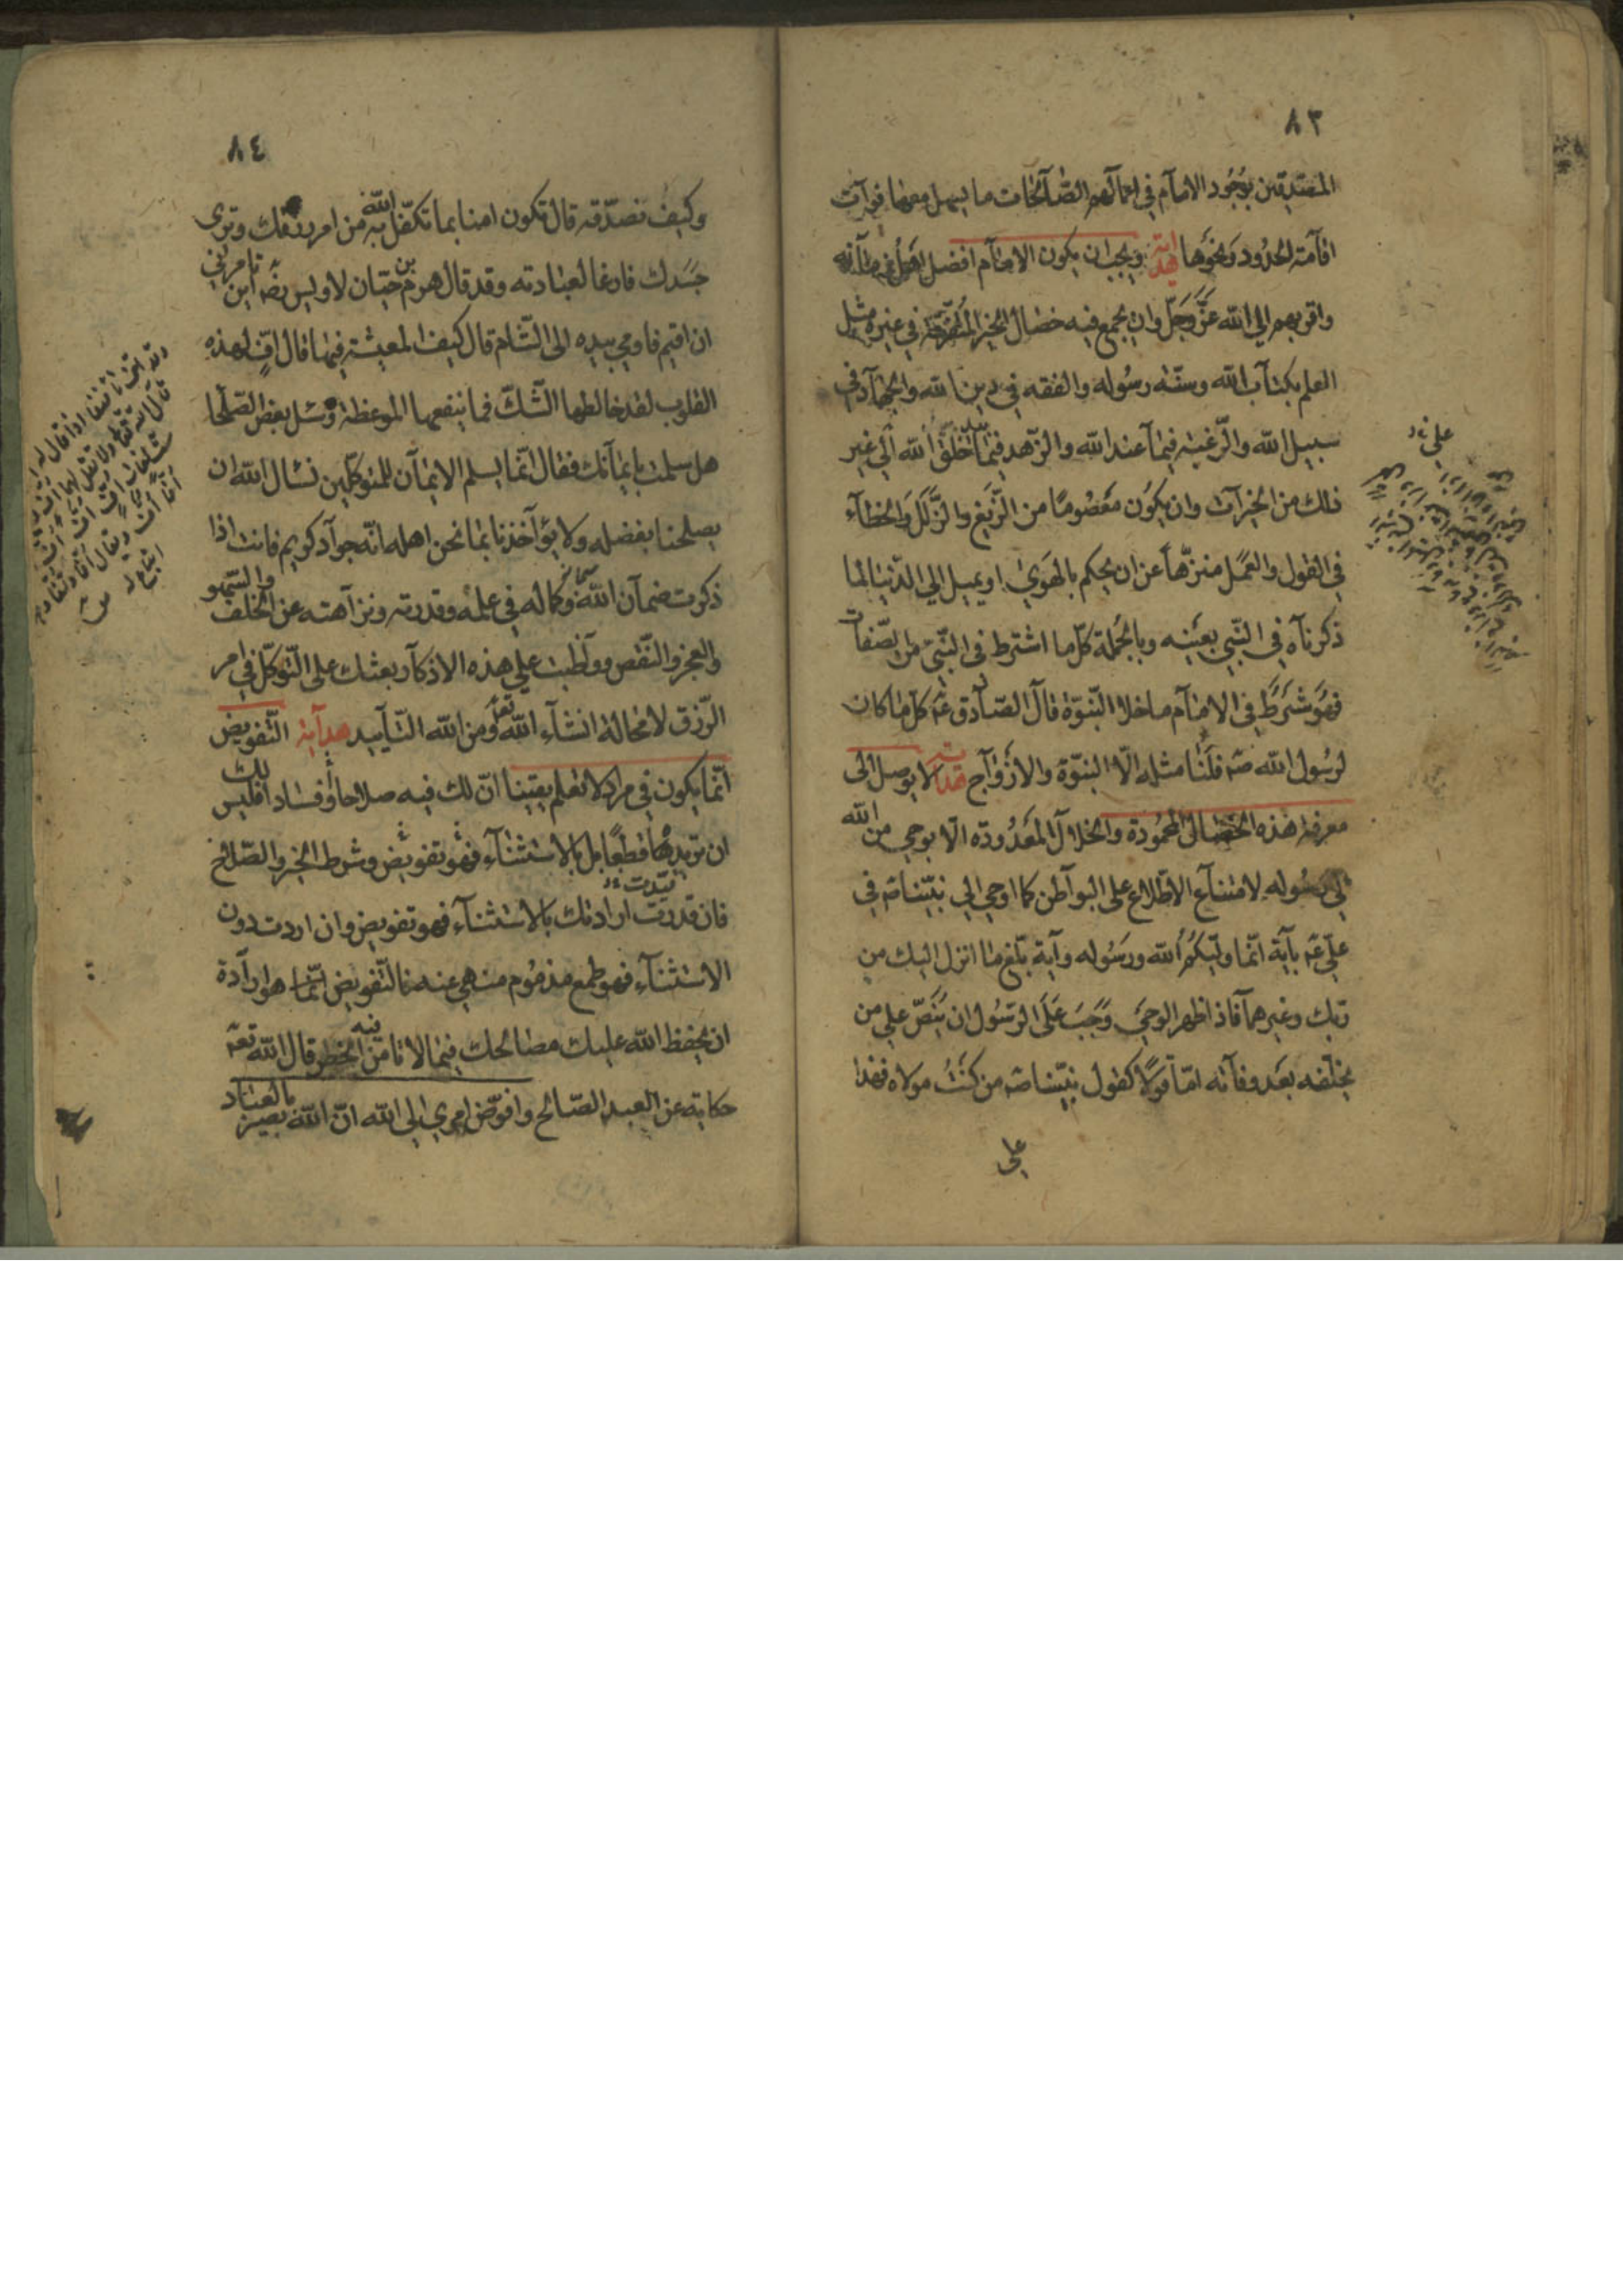 ٨٣
المصدقين بوجود الامام في اعمالهم الصالحات ما يسهل معها فوآت
اقامة الحدود ونحوها هداية ويجب ان يكون الامام افضل اهل زمانه
واقربهم الي الله عزّ وجلّ وان يجمع فيه خصال الخير المتفرقة في غيره مثل
العلم بكتاب الله وسنّة رسوله والفقه في دين الله والجهاد في
سبيل الله والرّغبة فيما عند الله والزّهد فيما بيد خلق الله الي غير
ذلك من الخيرآت وان يكون معصومًا من الزّيغ والزّلل والخطآء
في القول والعمل منزّهاً عن ان يحكم بالهوي او يميل الي الدّنيا لما
ذكرناه في النّبي بعينه وبالجملة كلّ ما اشترط في النّبيّ من الصّفات
فهو شرط في الامام ما خلا النّبوّة قال الصّادق عم كل ما كان
لرسول الله صم فلنا مثله الّا النبوّة والازوآج هداية لا يوصل الى
معرفة هذه الخصال المحمودة والخلال المعدودة الّا بوحي من الله
الي رسوله لامتناع الاطّلاع على البوآطن كما اوحي الي نبيّنا صم في
عليّ عم بآية انّما وليّكم الله ورسوله وآية بلّغ ما انزل اليك من
ربّك وغيرهما فاذا ظهر الوحي وجب على الرّسول ان ينصّ علي من
يخلفه بعد وفاته امّا قولًا كقول نبيّنا صم من كنت مولاه فهذا
علي
٨٤
وكيف نصدّقه قال تكون امنا بما تكفّل الله به من امر رزقك وترى
جسدك فارغا لعبادته وقد قال هرم بن حيّان لاويس رضه اين تامرني
ان اقيم فاومي بيده الى الشّام قال كيف المعيشة فيها قال افٍّ لهذه
القلوب لقد خالطها الشّكّ فما ينفعها الموعظة وسئل بعض الصّلحا
هل سلمت بايمانك فقال انّما يسلم الايمان للمتوكّلين نسال الله ان
يصلحنا بفضله ولا يؤآخذنا بما نحن اهله انّه جوآد كريم فانت اذا
ذكرت ضمان الله سبحانه وكماله في علمه وقدرته ونزآهته عن الخلف والسّهو
والعجز والنّقص وواظبت علي هذه الاذكار بعثك على التّوكّل في امر
الرّزق لا محالة انشآء الله تعالى ومن الله التّاييد هدآية التّفويض
انّما يكون في مراد لا تعلم يقينا انّ لك فيه صلاحا او فسادا فليس لك
ان تريدها قطعًا بل بالاستثنآء فهو تفويض وشرط الخير والصّلاح
فان قيّدت ارادتك بالاستثنآء فهو تفويض وان اردت دون
الاستثنآء فهو طمع مذموم منهي عنه فالتّفويض انّما هو ارآدة
ان يحفظ الله عليك مصالحك فيما لا تامن فيه الخطر قال الله تعه
حكاية عن العبد الصّالح وافوّض امري الي الله انّ الله بصير بالعباد